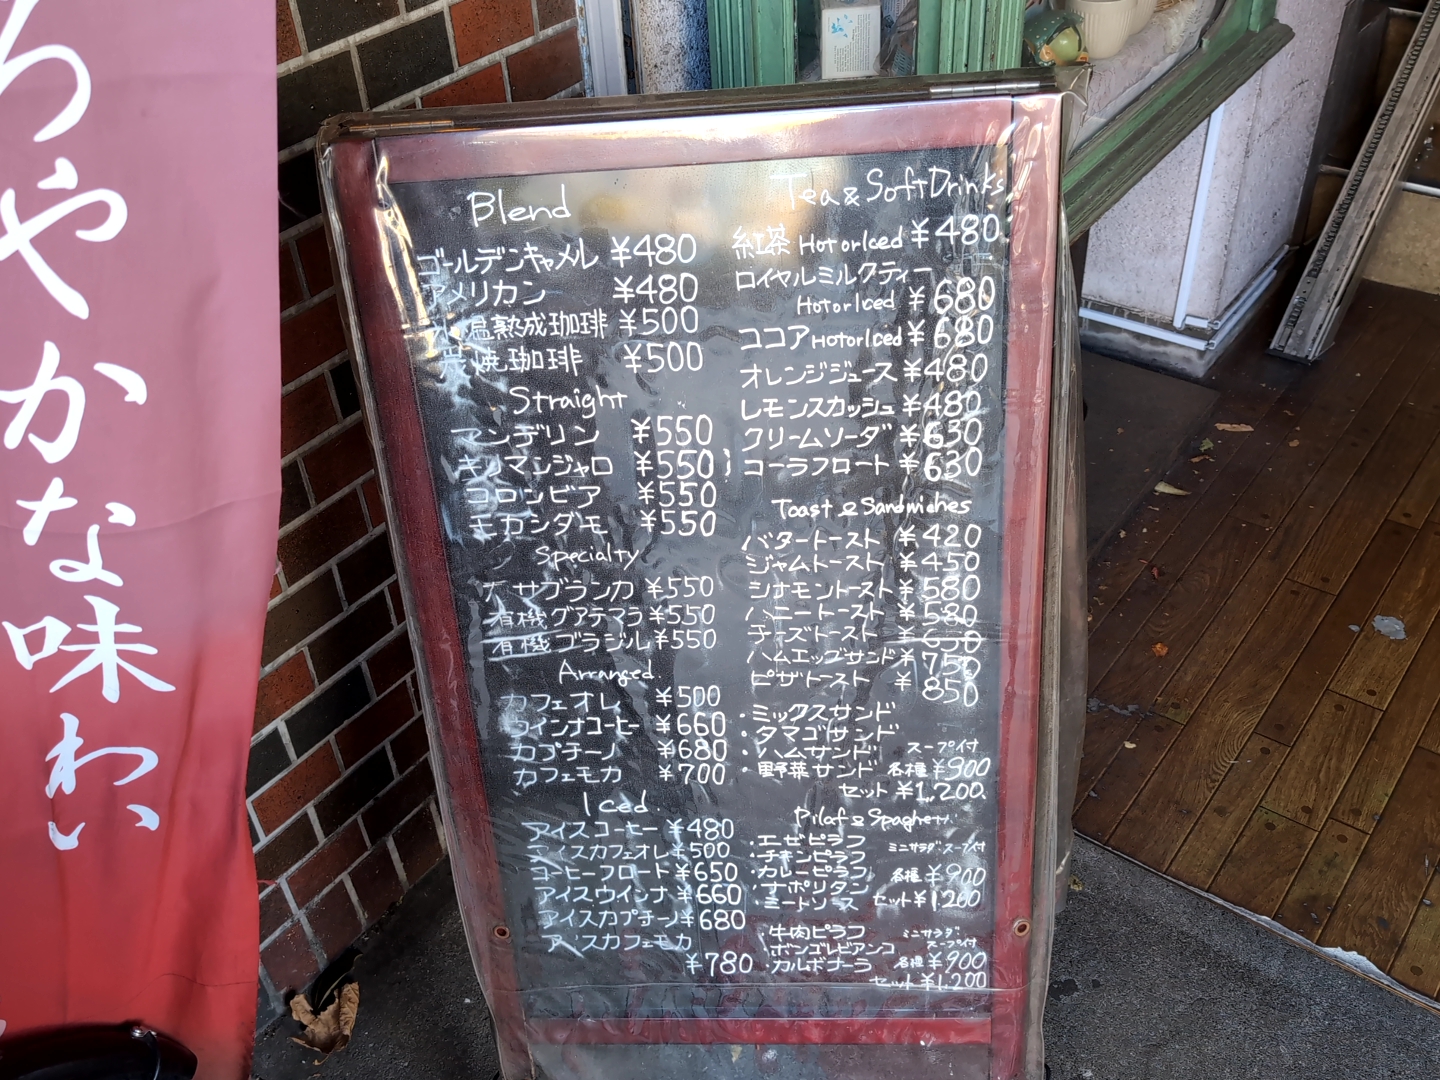 ちやかな味わい
Blend
ゴールデンキャメル ¥480
アメリカン ¥480
温熟成珈琲 ¥500
炭焼珈琲 ¥500
Straight
マンデリン ¥550
キリマンジャロ ¥550
コロンビア ¥550
モカシダモ ¥550
Specialty
サブランカ ¥550
有機グアテマラ ¥550
有機ブラジル ¥550
Arranged.
カフェオレ ¥500
ウインナコーヒー ¥660
カプチーノ ¥680
カフェモカ ¥700
Iced.
アイスコーヒー ¥480
アイスカフェオレ ¥500
コーヒーフロート ¥650
アイスウインナ ¥660
アイスカプチーノ ¥680
アイスカフェモカ
¥780
Tea & SoftDrinks
紅茶 HotorIced ¥480
ロイヤルミルクティー
HotorIced ¥680
ココア HotorIced ¥680
オレンジジュース ¥480
レモンスカッシュ ¥480
クリームソーダ ¥630
コーラフロート ¥630
Toast & Sandwiches
バタートースト ¥420
ジャムトースト ¥450
シナモントースト ¥580
ハニートースト ¥580
チーズトースト ¥650
ハムエッグサンド ¥750
ピザトースト ¥850
・ミックスサンド
・タマゴサンド
・ハムサンド スープ付
・野菜サンド 各種 ¥900
セット ¥1,200.
Pilaf & Spaghetti
・エビピラフ ミニサラダスープ付
・チキンピラフ
・カレーピラフ 各種 ¥900
・ナポリタン
・ミートソース セット ¥1,200
・牛肉ピラフ ミニサラダ
・ボンゴレビアンコ スープ付
・カルボナーラ 各種 ¥900
セット ¥1,200